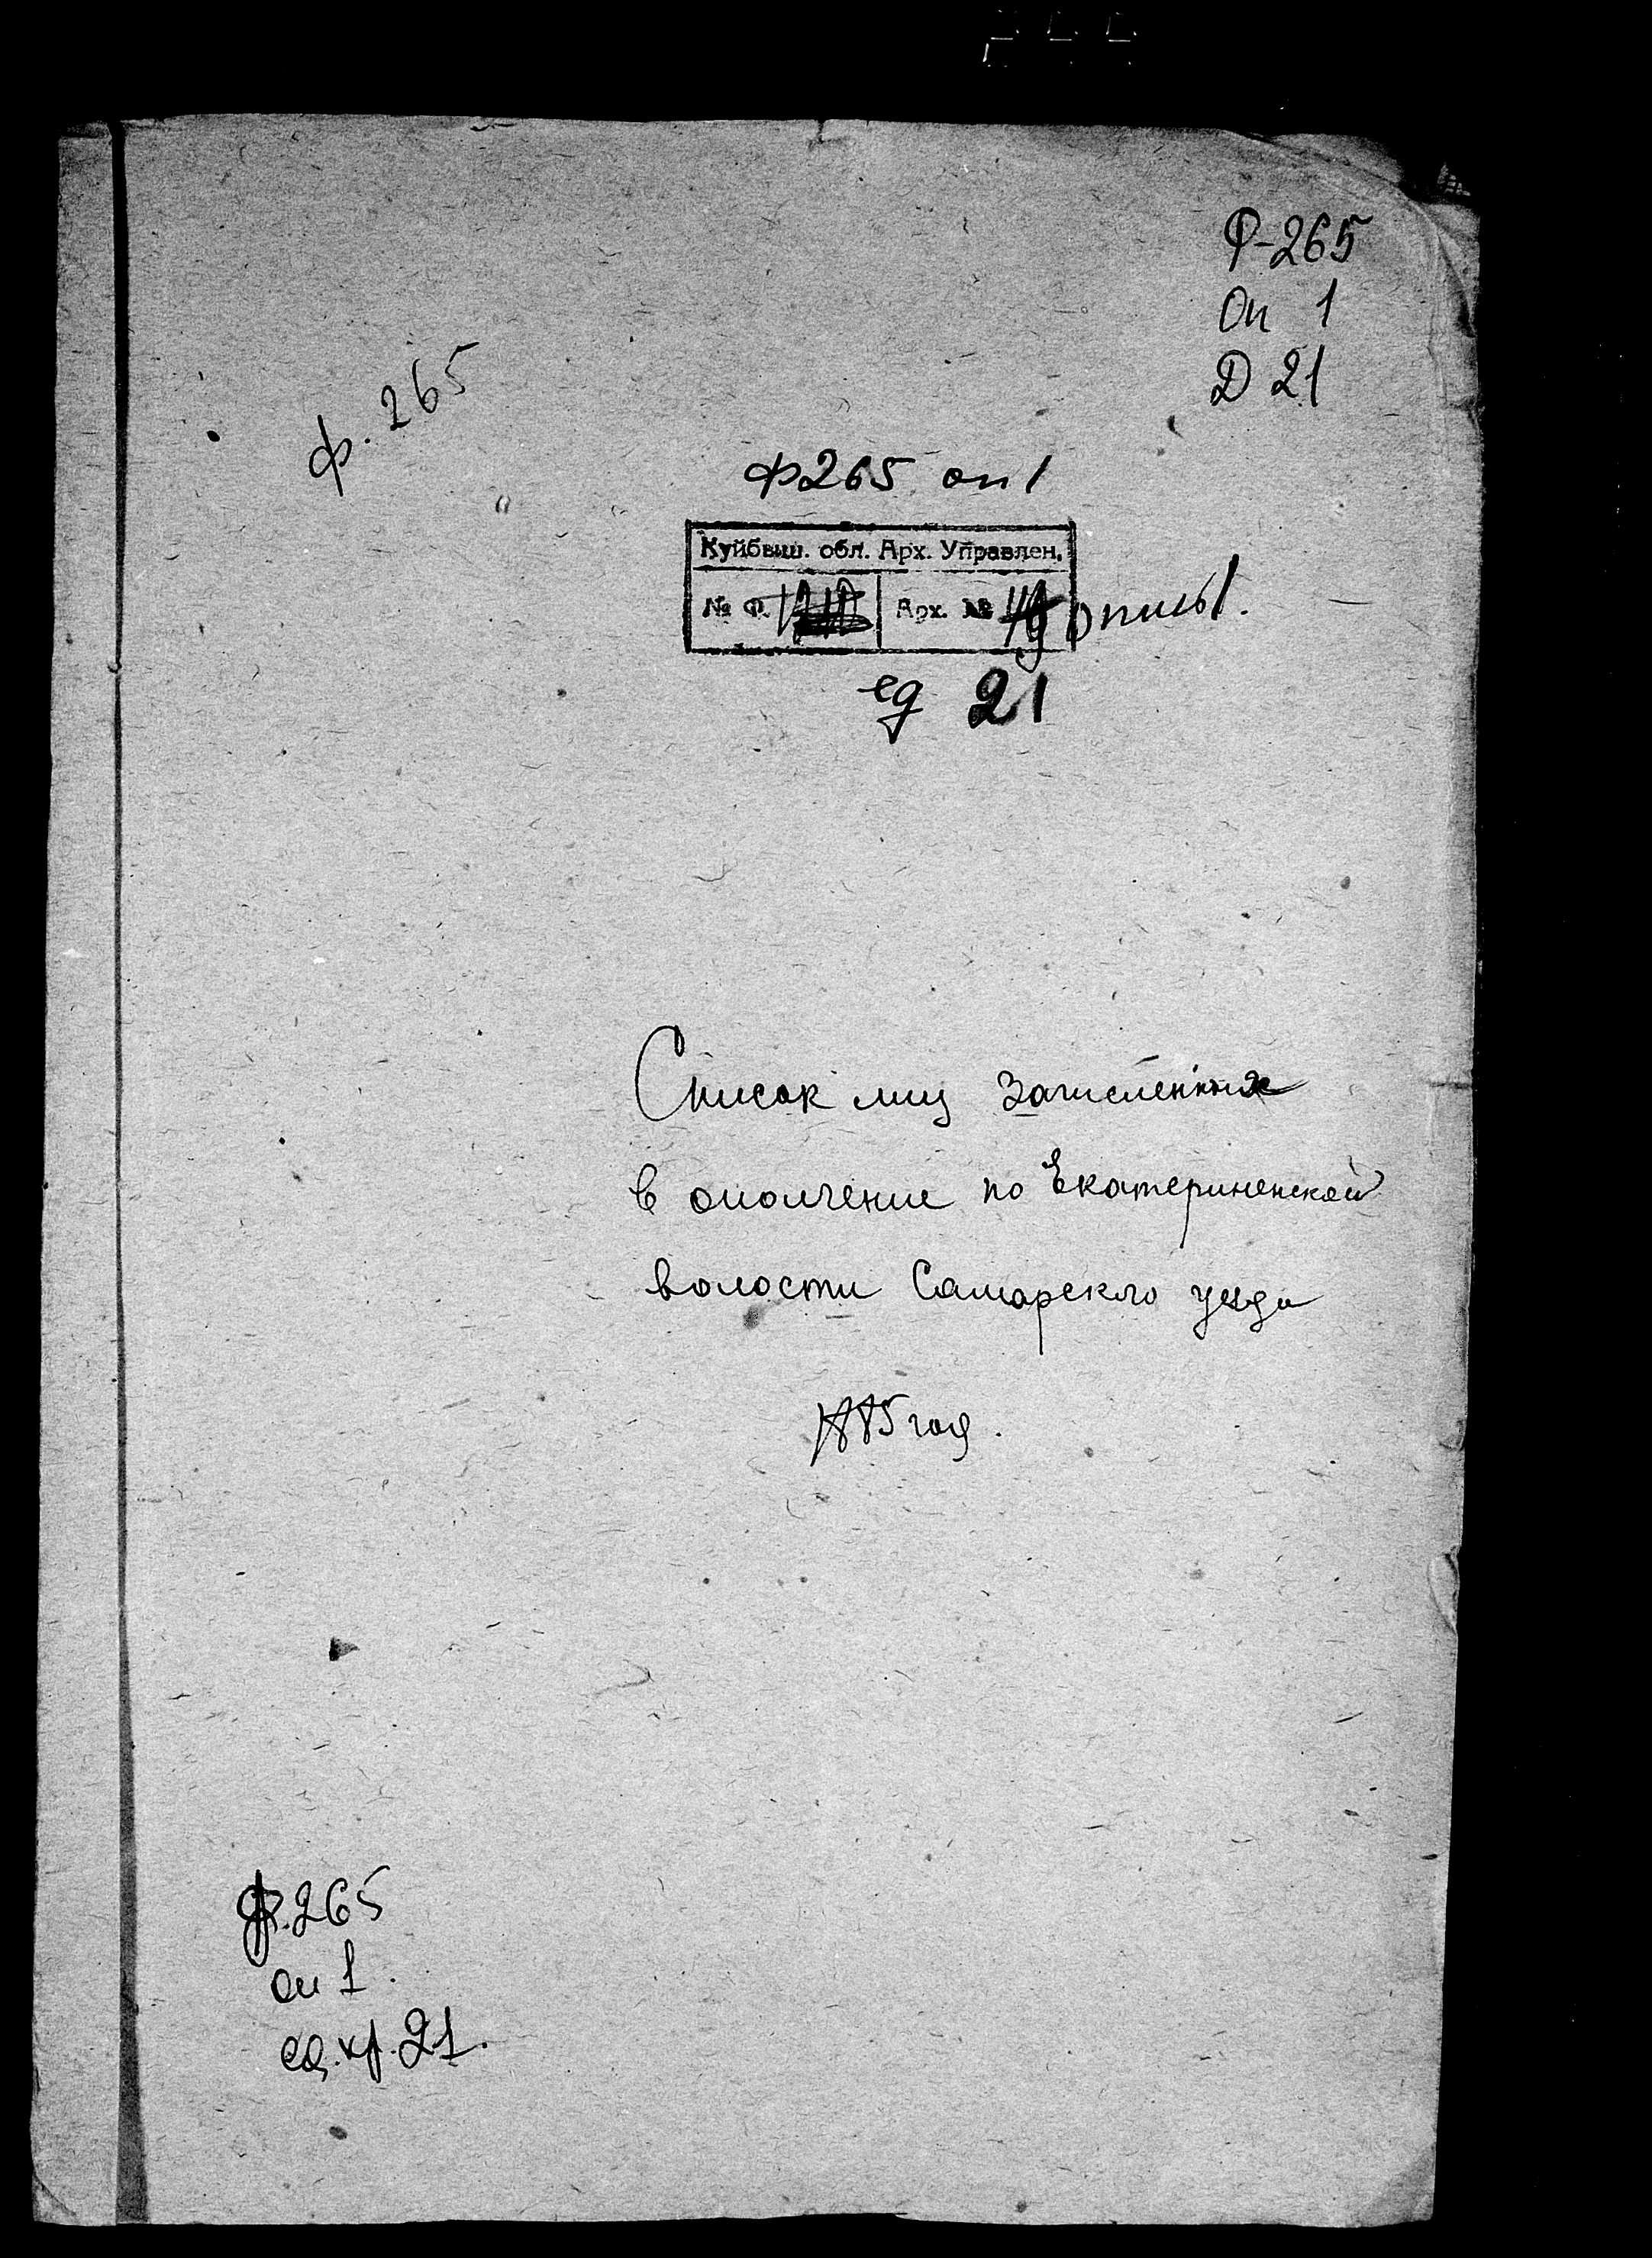 Ф-265
Оп 1
Д 21
ф. 265
Ф265 оп 1
Куйбыш. обл. Арх. Управлен.
№ Ф. Арх. № опись 1.
ед 21
Список лиц зачисленных
в ополчение по Екатериненской
волости Самарского уезда
год.
Ф. 265
оп 1.
ед. хр. 21.